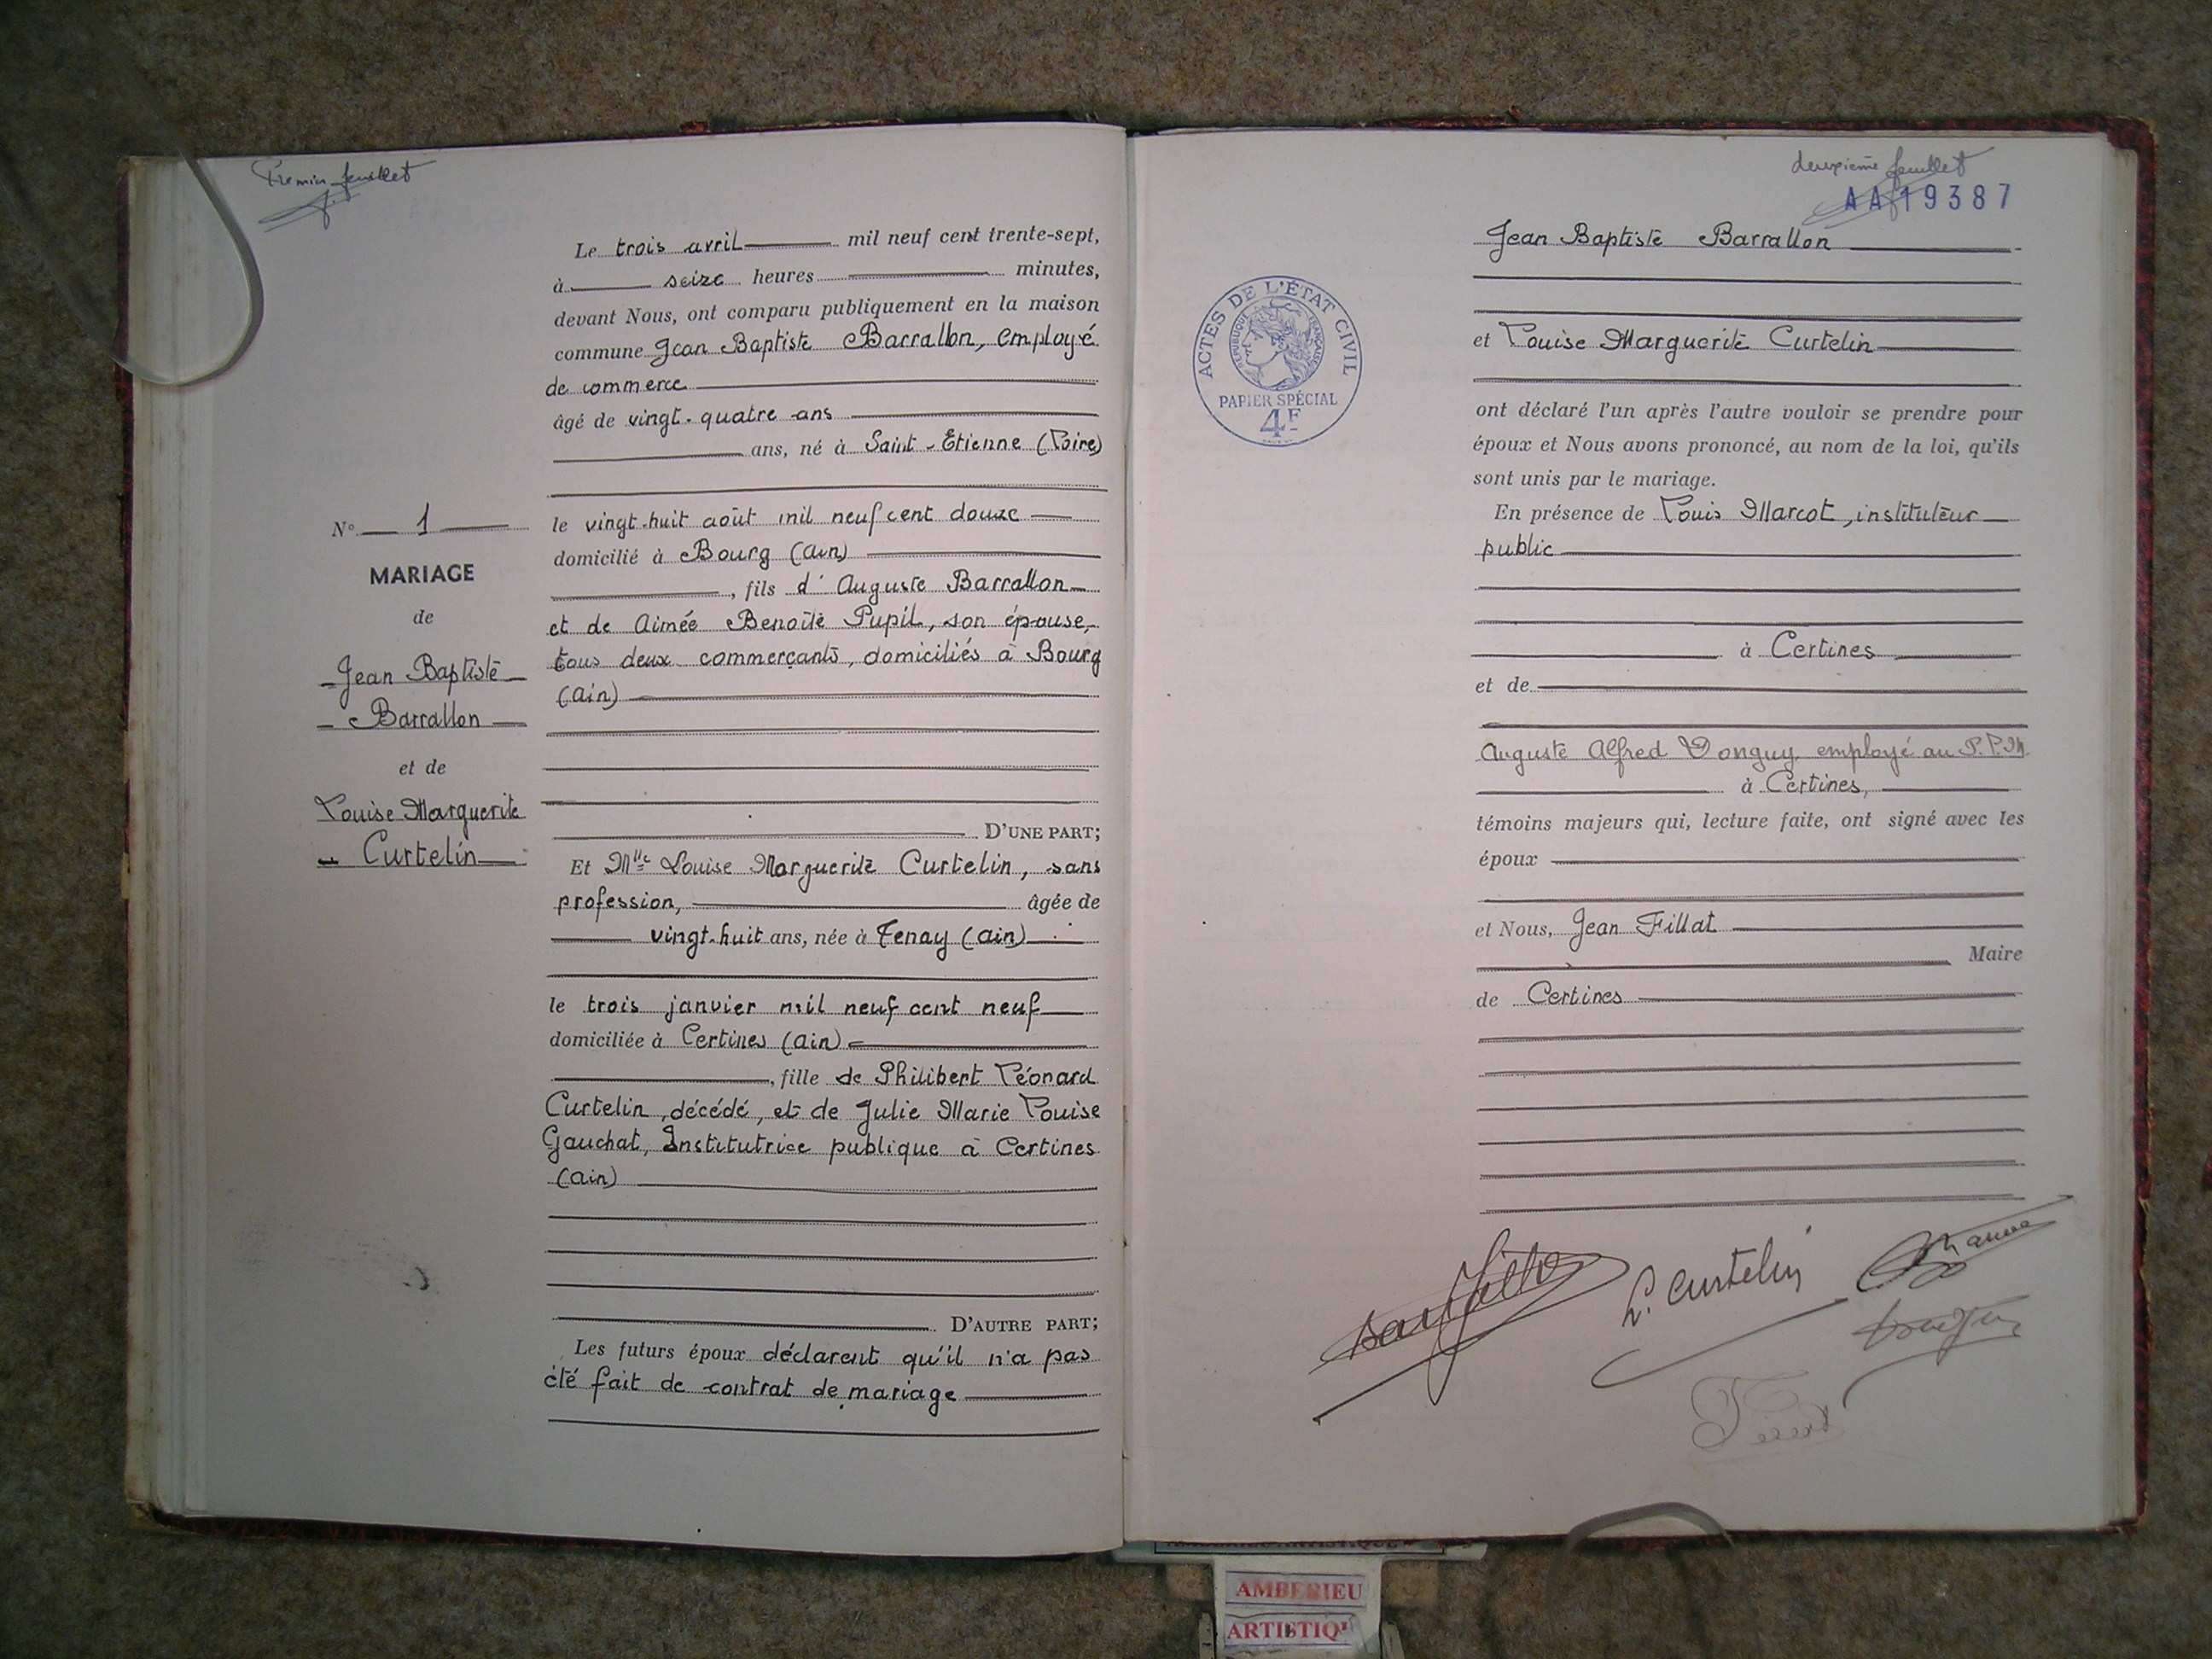 Premier feuillet
Le trois avril mil neuf cent trente-sept,
à seize heures minutes,
devant Nous, ont comparu publiquement en la maison
commune Jean Baptiste Barrallon, employé
de commerce
âgé de vingt-quatre ans
ans, né à Saint-Etienne (Loire)
le vingt-huit août mil neuf cent douze
domicilié à Bourg (Ain)
, fils d'Auguste Barrallon
et de Aimée Benoîte Pupil, son épouse,
tous deux commerçants, domiciliés à Bourg
(Ain)
D'UNE PART;
Et Mlle Louise Marguerite Curtelin, sans
profession, âgée de
vingt-huit ans, née à Tenay (Ain)
le trois janvier mil neuf cent neuf
domiciliée à Certines (Ain)
, fille de Philibert Léonard
Curtelin, décédé, et de Julie Marie Louise
Gauchat, Institutrice publique à Certines
(Ain)
D'AUTRE PART;
Les futurs époux déclarent qu'il n'a pas
été fait de contrat de mariage
N° 1
MARIAGE
de
Jean Baptiste
Barrallon
et de
Louise Marguerite
Curtelin
deuxième feuillet
AA19387
ACTES DE L'ÉTAT CIVIL
RÉPUBLIQUE FRANÇAISE
PAPIER SPÉCIAL
4F
Jean Baptiste Barrallon
et Louise Marguerite Curtelin
ont déclaré l'un après l'autre vouloir se prendre pour
époux et Nous avons prononcé, au nom de la loi, qu'ils
sont unis par le mariage.
En présence de Louis Marcot, instituteur
public
à Certines
et de
Auguste Alfred Donguy employé au P.L.M.
à Certines,
témoins majeurs qui, lecture faite, ont signé avec les
époux
et Nous, Jean Fillat
Maire
de Certines
L. Curtelin
AMBERIEU
ARTISTIQ